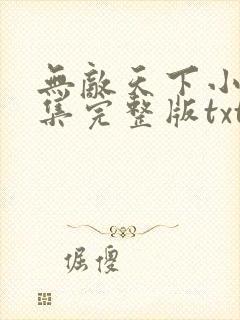 無敵天下小
集完整版txt
倔傻